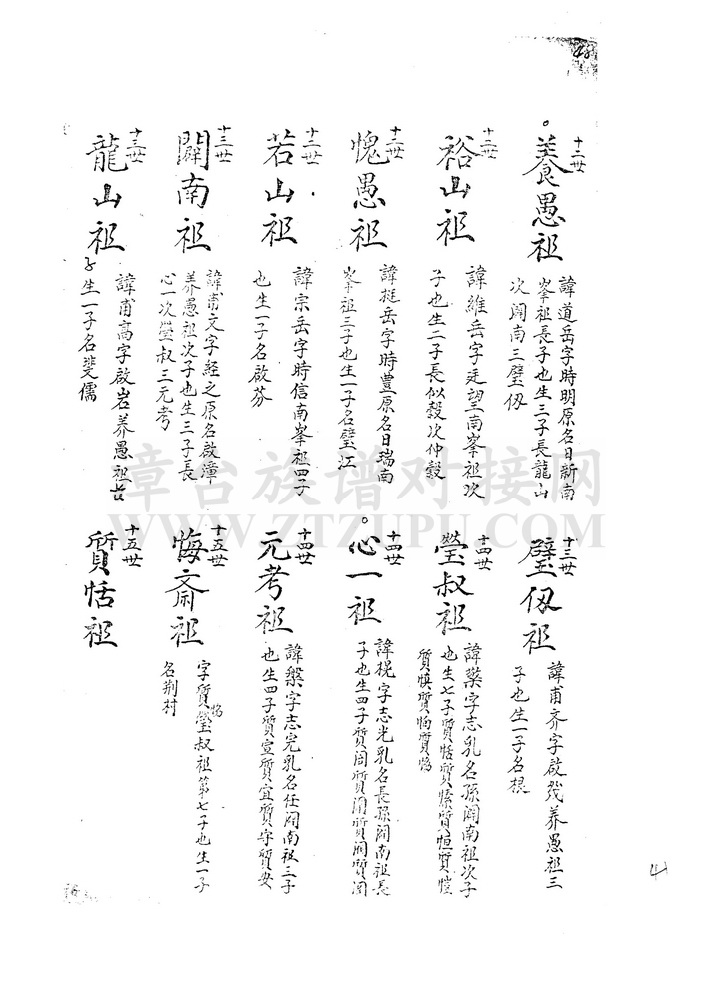 十二世
養愚祖
諱道岳字時明原名日新南
峯祖長子也生三子長龍山
次闢南三璧仞
十二世
裕山祖
諱維岳字廷望南峯祖次
子也生二子長似穀次仲穀
十二世
愧愚祖
諱挺岳字時豊原名日瑞南
峯祖三子也生一子名璧江
十二世
若山祖
諱宗岳字時信南峯祖四子
也生一子名啟芬
十三世
闢南祖
諱甫文字經之原名啟漳
养愚祖次子也生三子長
心一次瑩叔三元考
十三世
龍山祖
諱甫高字啟岩养愚祖長
子生一子名斐儒
十三世
璧仞祖
諱甫齐字啟幾养愚祖三
子也生一子名根
十四世
瑩叔祖
諱蘖字志乳名孫闢南祖次子
也生七子質恬質慄質恒質愷
質慎質恂質恊
十四世
心一祖
諱榥字志光乳名長孫闢南祖長
子也生四子質誾質 質 質
十四世
元考祖
諱槃字志完乳名任闢南祖三子
也生四子質宣質宜質守質安
十五世
悔齋祖
字質恊瑩叔祖第七子也生一子
名荆村
十五世
質恬祖
章台族谱对接网
WWW.ZTZUPU.COM